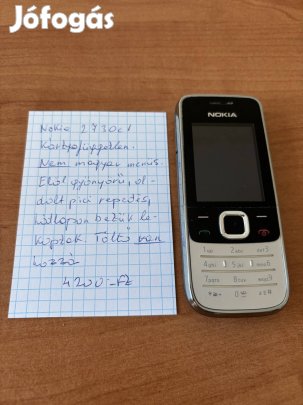 Jófogás
Nokia 2730c1
Kártyafüggetlen.
Nem magyar menüs.
Elöl gyönyörű, ol-
dalt pici repedés,
hátlapon betűk le-
koptak. Töltő van
hozzá
4200.-Ft
NOKIA
1 2abc def3
4ghi 5jkl mno6
7pqrs 8tuv wxyz9
*+ 0 #